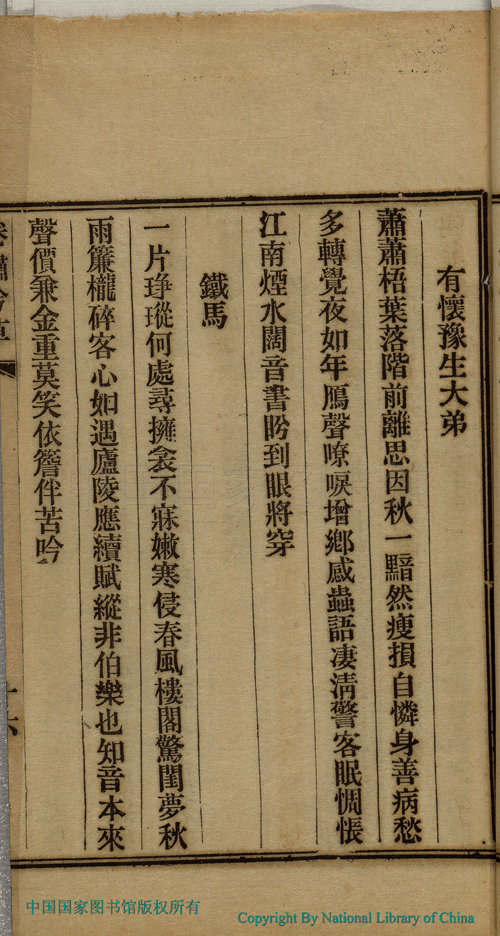 有懷豫生大弟
蕭蕭梧葉落階前離思因秋一黯然瘦損自憐身善病愁
多轉覺夜如年鴈聲嘹唳增鄉感蟲語凄淸警客眠惆悵
江南煙水闊音書盼到眼將穿
鐵馬
一片琤瑽何處尋擁衾不寐嫩寒侵春風樓閣驚閨夢秋
雨簾櫳碎客心如遇廬陵應續賦縱非伯樂也知音本來
聲價兼金重莫笑依簷伴苦吟
中国国家图书馆版权所有
Copyright By National Library of China